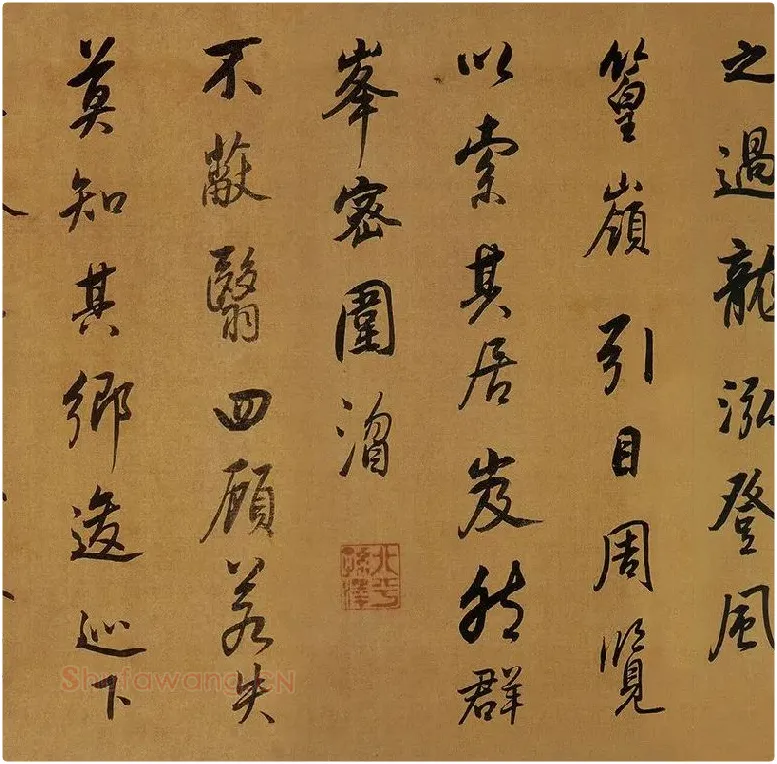 之過龍泓登風
篁嶺引目周覽
以索其居岌然群
峯密圍溜
不蔽翳四顧若失
莫知其鄉逡巡下
北平
孫澤
Shufawang.CN